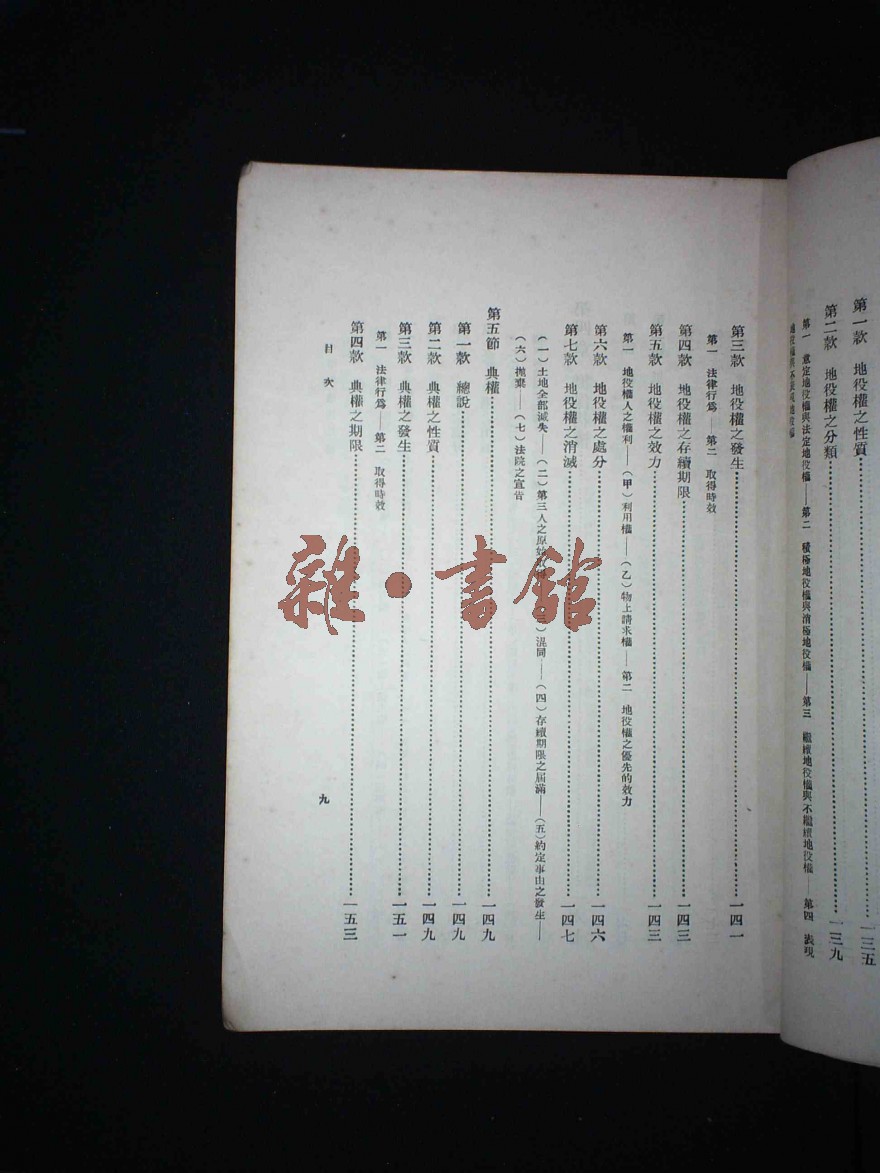 第一款　地役權之性質……一三五
第二款　地役權之分類……一三九
第一　意定地役權與法定地役權——第二　積極地役權與消極地役權——第三　繼續地役權與不繼續地役權——第四　表現
地役權與不表現地役權
第三款　地役權之發生……一四一
第一　法律行爲——第二　取得時效
第四款　地役權之存續期限……一四三
第五款　地役權之效力……一四三
第一　地役權人之權利——（甲）利用權——（乙）物上請求權——第二　地役權之優先的效力
第六款　地役權之處分……一四六
第七款　地役權之消滅……一四七
（一）土地全部滅失——（二）第三人之原始　）混同——（四）存續期限之屆滿——（五）約定事由之發生——
（六）拋棄——（七）法院之宣告
第五節　典權……一四九
第一款　總說……一四九
第二款　典權之性質……一四九
第三款　典權之發生……一五一
第一　法律行爲——第二　取得時效
第四款　典權之期限……一五三
目次
九
雜·書館